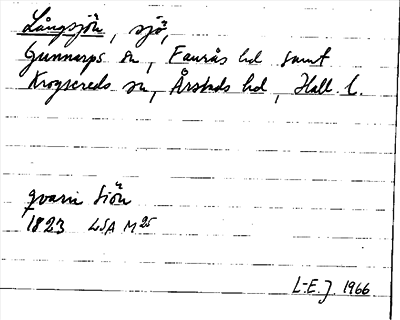 Långsjön, sjö,
Gunnarps sn, Faurås hd samt
Krogsereds sn, Årstads hd, Hall. l.
qvarn Siön
1823 LSA M25
L-E.J. 1966